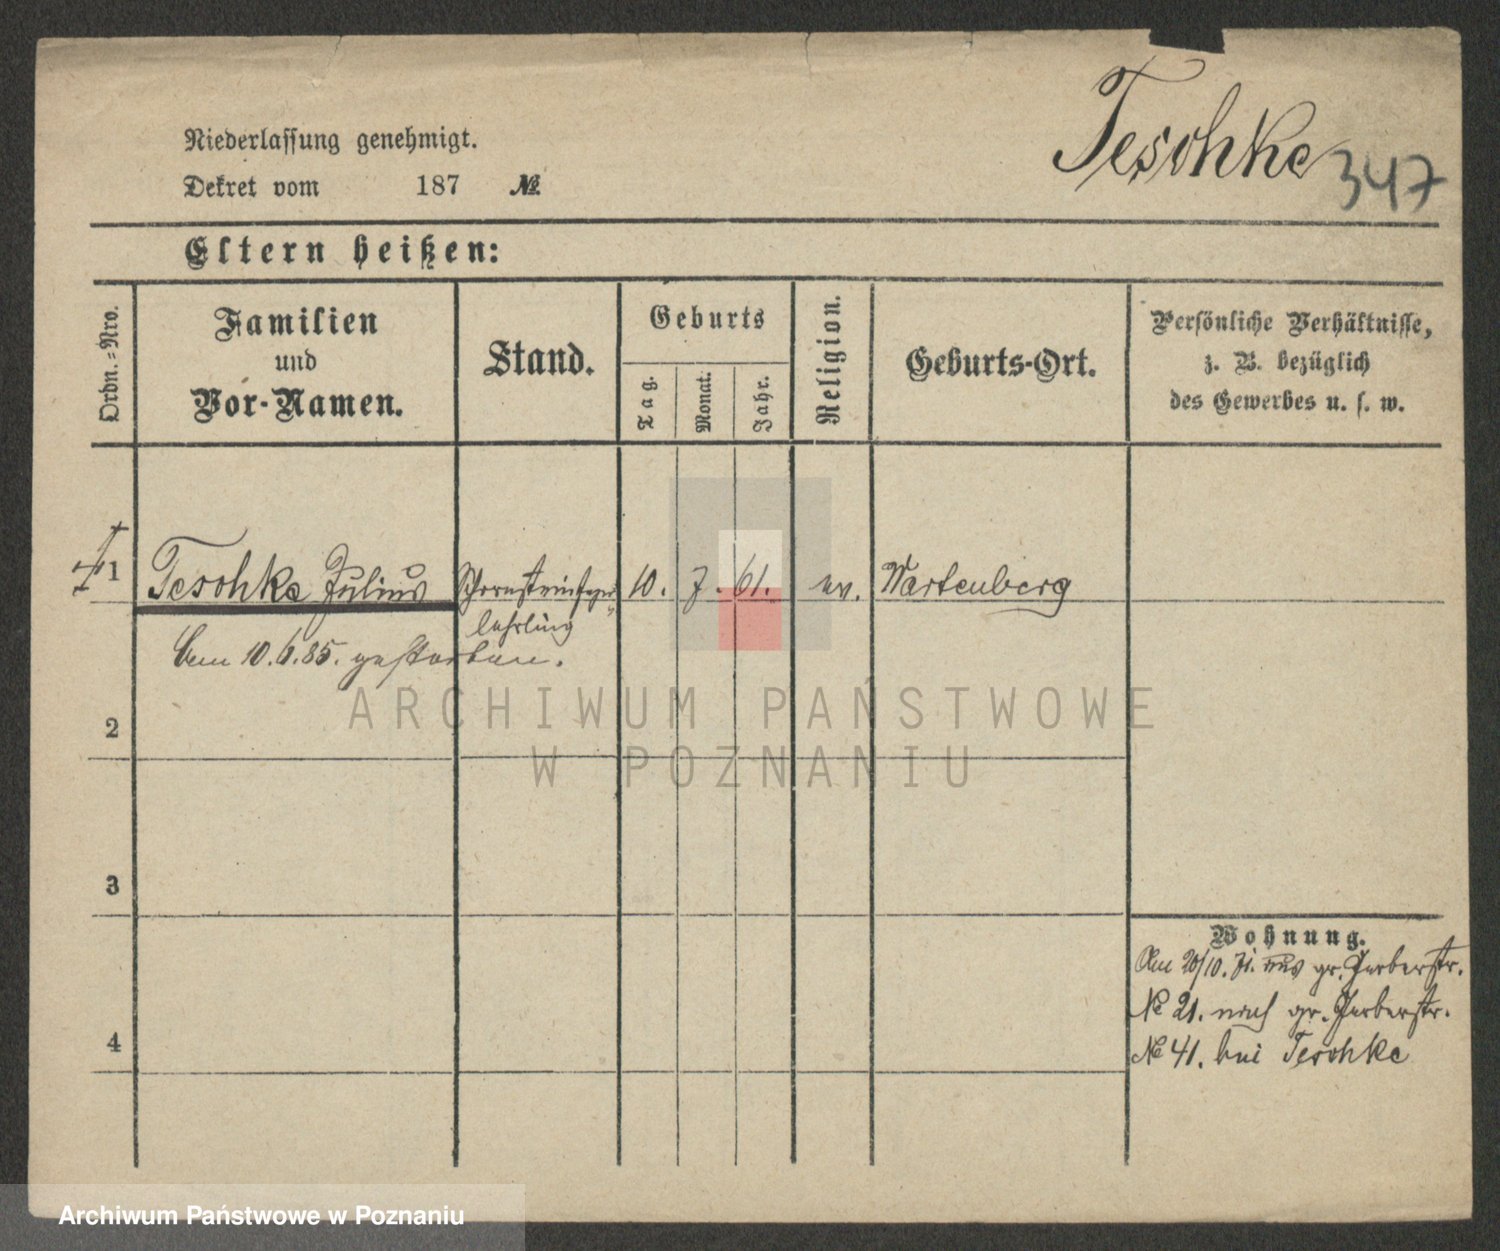 Teschke
347
Niederlassung genehmigt.
Dekret vom 187 №
Eltern heißen:
Ordn.-Nro.
Familien
und
Vor-Namen.
Stand.
Geburts
Tag.
Monat.
Jahr.
Religion.
Geburts-Ort.
Persönliche Verhältnisse,
z. B. bezüglich
des Gewerbes u. s. w.
1 Teschke Julius Schornsteinfeger 10. 7. 61. ev. Wartenberg
lehrling
Am 10.6.85. gestorben.
2
3
4
Wohnung.
Am 20/10. 71. aus gr. Gerberstr.
№ 21. nach gr. Gerberstr.
№ 41. bei Teschke
ARCHIWUM PAŃSTWOWE
W POZNANIU
Archiwum Państwowe w Poznaniu